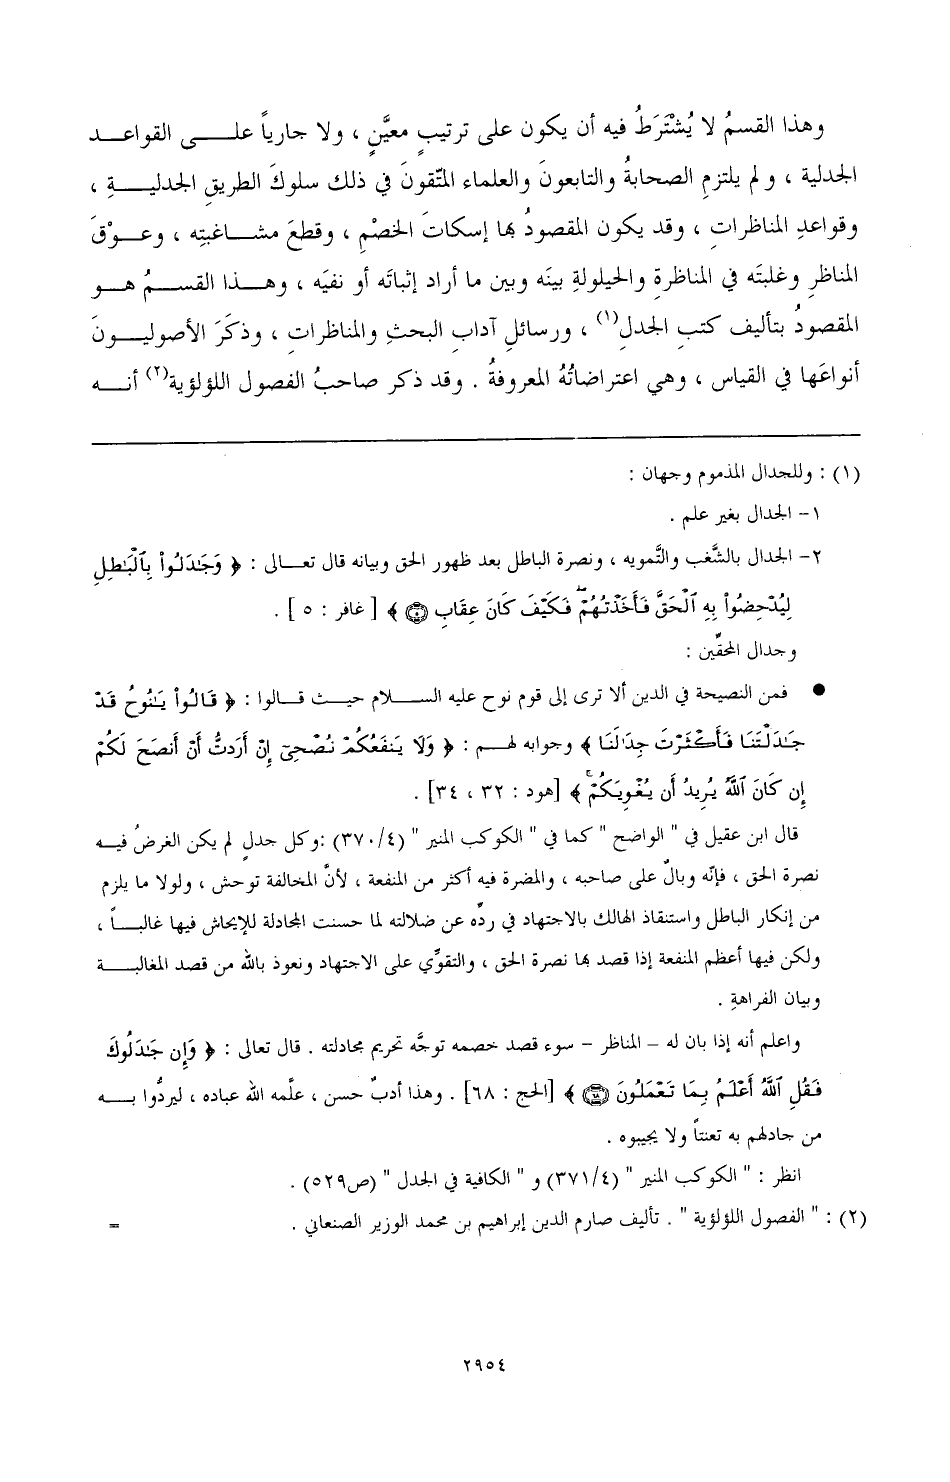 وهذا القسمُ لا يُشْتَرَطُ فيه أن يكون على ترتيبٍ معيَّنٍ ، ولا جارياً على القواعد
الجدلية ، ولم يلتزمِ الصحابةُ والتابعونَ والعلماء المتّقونَ في ذلك سلوكَ الطريقِ الجدليةِ ،
وقواعدِ المناظراتِ ، وقد يكون المقصودُ بها إسكاتَ الخصْمِ ، وقطعَ مشاغبتِه ، وعوْقَ
المناظرِ وغلبتَه في المناظرةِ والحيلولةِ بينَه وبين ما أراد إثباتَه أو نفيَه ، وهذا القسمُ هو
المقصودُ بتأليف كتبِ الجدلِ(١) ، ورسائلِ آدابِ البحثِ والمناظراتِ ، وذكَرَ الأصوليونَ
أنواعَها في القياس ، وهي اعتراضاتُهُ المعروفةُ . وقد ذكر صاحبُ الفصول اللؤلؤية(٢) أنه
(١) : وللجدال المذموم وجهان :
١- الجدال بغير علم .
٢- الجدال بالشَّغب والتَّمويه ، ونصرة الباطل بعد ظهور الحق وبيانه قال تعالى : ﴿ وَجَٰدَلُوا۟ بِٱلْبَٰطِلِ
لِيُدْحِضُوا۟ بِهِ ٱلْحَقَّ فَأَخَذْتُهُمْ ۖ فَكَيْفَ كَانَ عِقَابِ ۝٥ ﴾ [ غافر : ٥ ] .
وجدال المحقّين :
● فمن النصيحة في الدين ألا ترى إلى قوم نوح عليه السلام حيث قالوا : ﴿ قَالُوا۟ يَٰنُوحُ قَدْ
جَٰدَلْتَنَا فَأَكْثَرْتَ جِدَٰلَنَا ﴾ وجوابه لهم : ﴿ وَلَا يَنفَعُكُمْ نُصْحِىٓ إِنْ أَرَدتُّ أَنْ أَنصَحَ لَكُمْ
إِن كَانَ ٱللَّهُ يُرِيدُ أَن يُغْوِيَكُمْ ۚ ﴾ [هود : ٣٢ ، ٣٤] .
قال ابن عقيل في " الواضح " كما في " الكوكب المنير " (٣٧٠/٤) :وكل جدلٍ لم يكن الغرضُ فيه
نصرة الحق ، فإنّه وبالٌ على صاحبه ، والمضرة فيه أكثر من المنفعة ، لأنَّ المخالفة توحش ، ولولا ما يلزم
من إنكار الباطل واستنقاذ الهالك بالاجتهاد في ردِّه عن ضلالته لما حسنت المجادلة للإيحاش فيها غالباً ،
ولكن فيها أعظم المنفعة إذا قصد بها نصرة الحق ، والتقوّي على الاجتهاد ونعوذ بالله من قصد المغالبة
وبيان الفراهةِ .
واعلم أنه إذا بان له – المناظر – سوء قصد خصمه توجَّه تحريم مجادلته . قال تعالى : ﴿ وَإِن جَٰدَلُوكَ
فَقُلِ ٱللَّهُ أَعْلَمُ بِمَا تَعْمَلُونَ ۝٦٨ ﴾ [الحج : ٦٨] . وهذا أدبٌ حسن ، علّمه الله عباده ، ليردُّوا به
من جادلهم به تعنتاً ولا يجيبوه .
انظر : " الكوكب المنير " (٣٧١/٤) و " الكافية في الجدل " (ص٥٢٩) .
(٢) : " الفصول اللؤلؤية " . تأليف صارم الدين إبراهيم بن محمد الوزير الصنعاني . =
٢٩٥٤